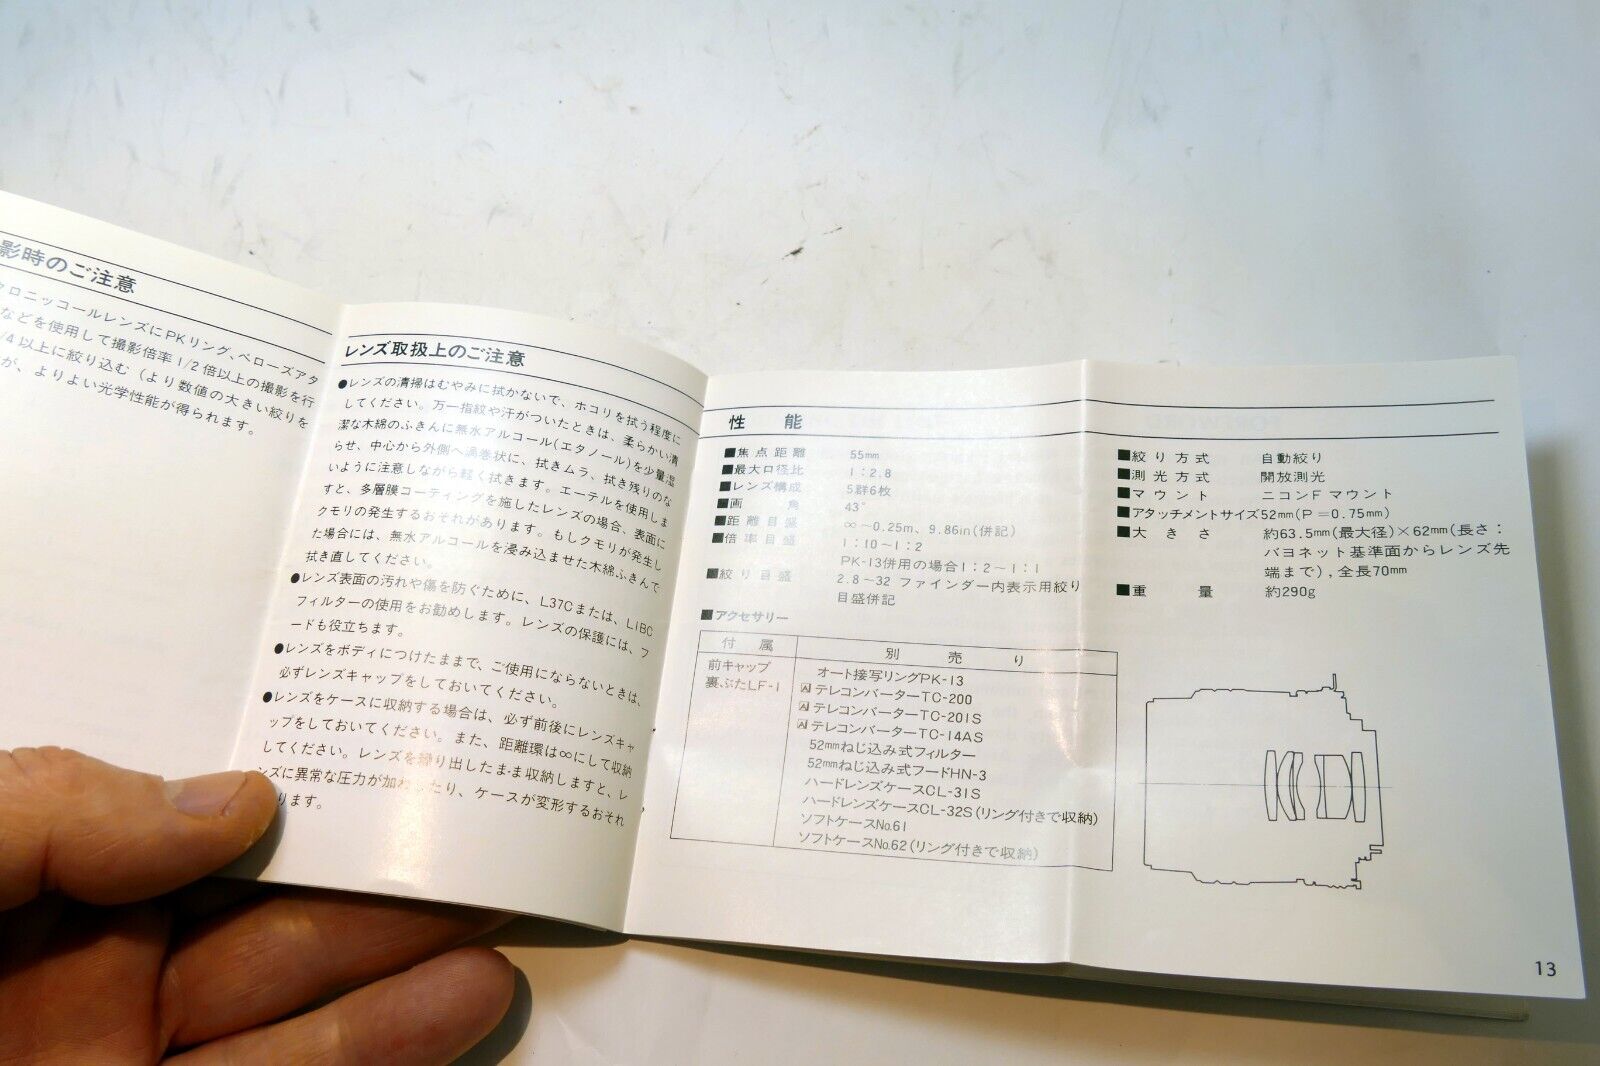 影時のご注意
クロニッコールレンズにPKリング、ベローズアタ
などを使用して撮影倍率1/2倍以上の撮影を行
/4以上に絞り込む(より数値の大きい絞りを
が、よりよい光学性能が得られます。
レンズ取扱上のご注意
●レンズの清掃はむやみに拭かないで、ホコリを拭う程度に
してください。万一指紋や汗がついたときは、柔らかい清
潔な木綿のふきんに無水アルコール(エタノール)を少量湿
らせ、中心から外側へ渦巻状に、拭きムラ、拭き残りのな
いように注意しながら軽く拭きます。エーテルを使用しま
すと、多層膜コーティングを施したレンズの場合、表面に
クモリの発生するおそれがあります。もしクモリが発生し
た場合には、無水アルコールを浸み込ませた木綿ふきんで
拭き直してください。
●レンズ表面の汚れや傷を防ぐために、L37Cまたは、L1BC
フィルターの使用をお勧めします。レンズの保護には、フ
ードも役立ちます。
●レンズをボディにつけたままで、ご使用にならないときは、
必ずレンズキャップをしておいてください。
●レンズをケースに収納する場合は、必ず前後にレンズキャ
ップをしておいてください。また、距離環は∞にして収納
してください。レンズを繰り出したまま収納しますと、レ
ンズに異常な圧力が加わったり、ケースが変形するおそれ
ります。
性 能
■焦点距離 55mm
■最大口径比 1:2.8
■レンズ構成 5群6枚
■画 角 43°
■距離目盛 ∞~0.25m、9.86in(併記)
■倍率目盛 1:10~1:2
PK-13併用の場合1:2~1:1
■絞り目盛 2.8~32 ファインダー内表示用絞り
目盛併記
■アクセサリー
付 属 別 売 り
前キャップ
裏ぶたLF-1
オート接写リングPK-13
AIテレコンバーターTC-200
AIテレコンバーターTC-201S
AIテレコンバーターTC-14AS
52mmねじ込み式フィルター
52mmねじ込み式フードHN-3
ハードレンズケースCL-31S
ハードレンズケースCL-32S(リング付きで収納)
ソフトケースNo.61
ソフトケースNo.62(リング付きで収納)
■絞り方式 自動絞り
■測光方式 開放測光
■マウント ニコンFマウント
■アタッチメントサイズ 52mm(P=0.75mm)
■大きさ 約63.5mm(最大径)×62mm(長さ:
バヨネット基準面からレンズ先
端まで),全長70mm
■重 量 約290g
13